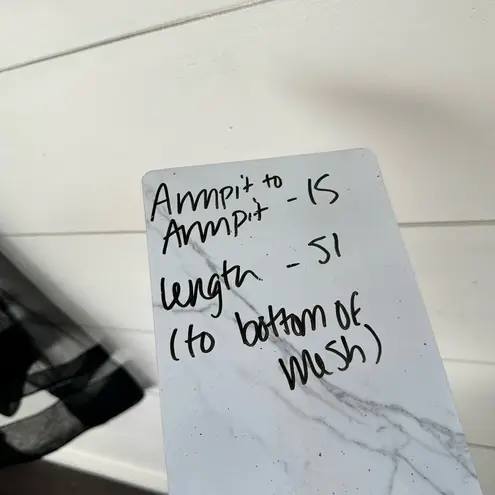 Armpit to
Armpit - 15
length - 51
(to bottom of
mesh)